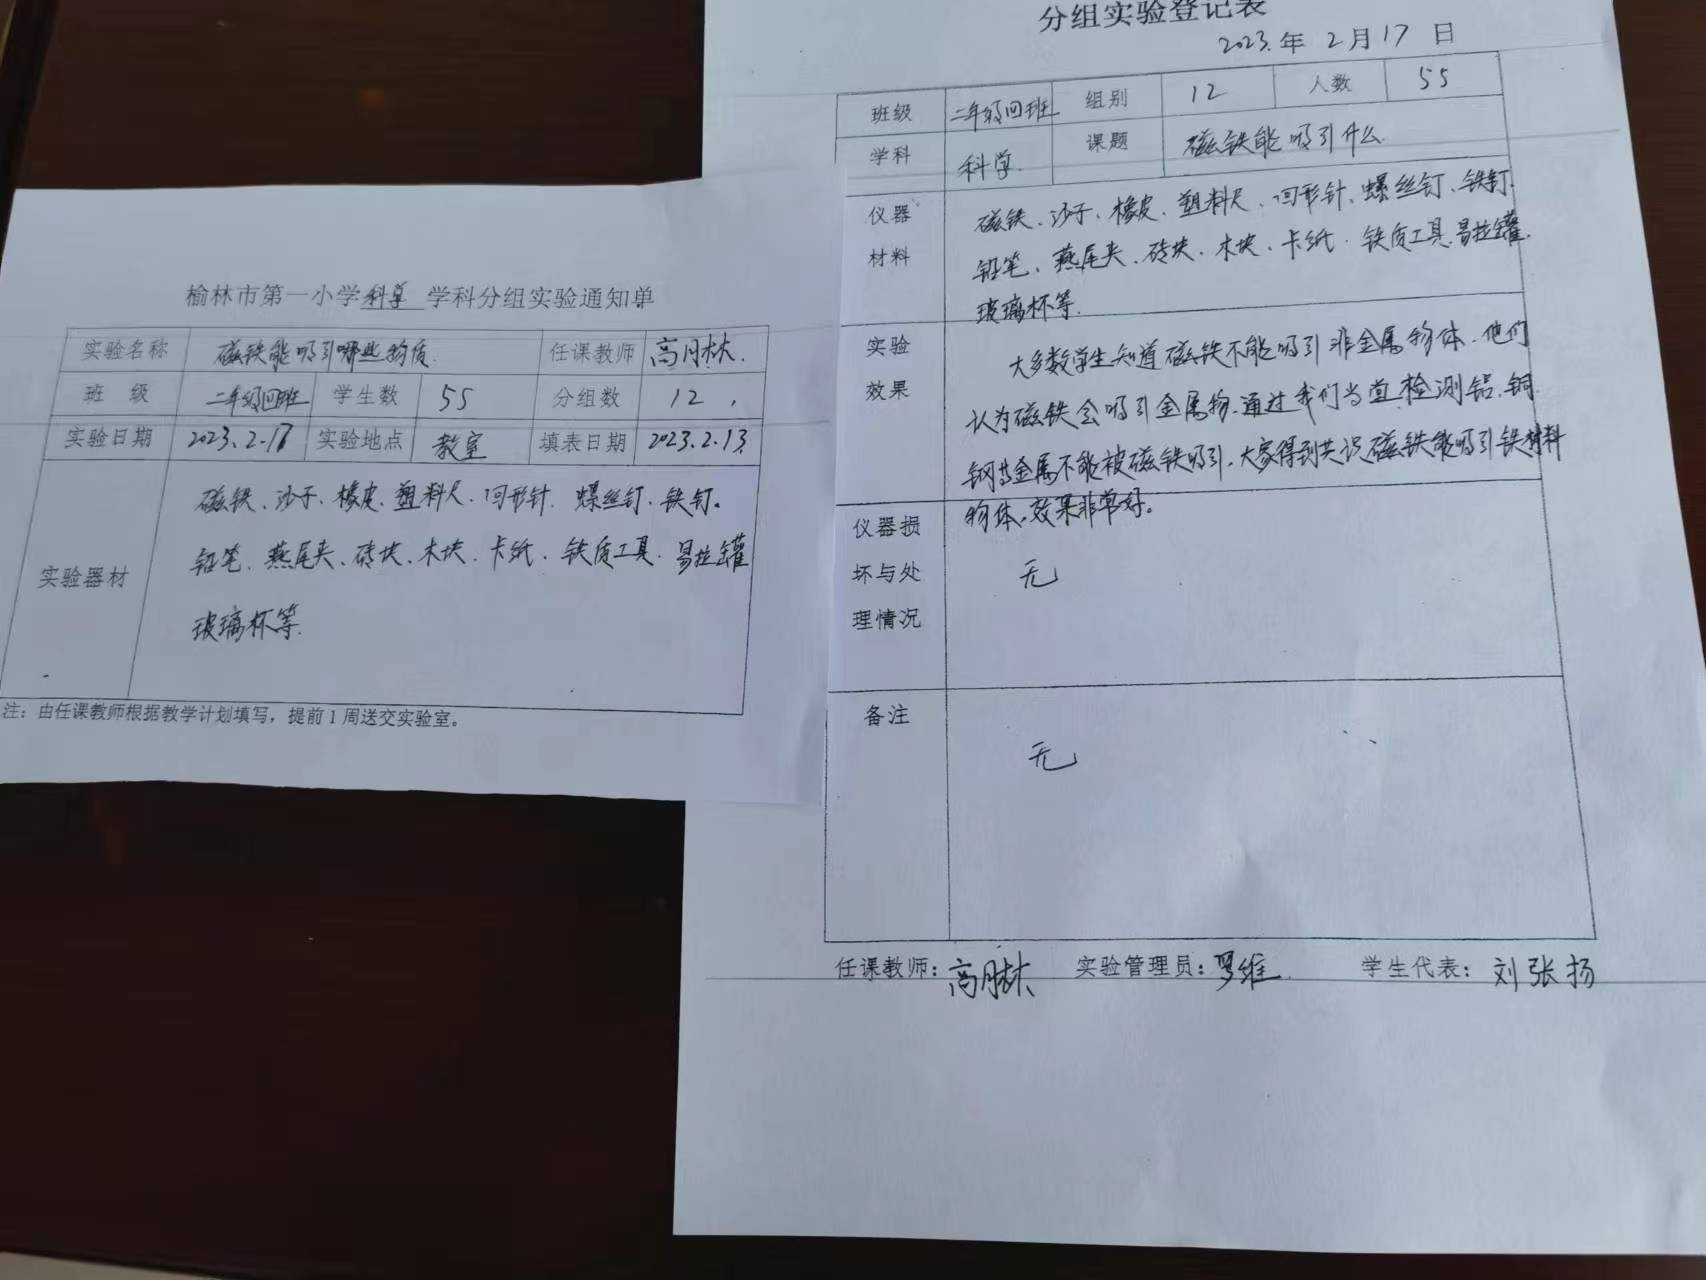 榆林市第一小学科学学科分组实验通知单
实验名称 磁铁能吸引哪些物质. 任课教师 高月林.
班 级 二年级四班 学生数 55 分组数 12
实验日期 2023.2.17 实验地点 教室 填表日期 2023.2.13
实验器材
磁铁、沙子、橡皮、塑料尺、回形针、螺丝钉、铁钉。
铅笔、燕尾夹、砖块、木块、卡纸、铁质工具、易拉罐
玻璃杯等.
注：由任课教师根据教学计划填写，提前1周送交实验室。
分组实验登记表
2023.年 2月17日
班级 二年级四班 组别 12 人数 55
学科 科学. 课题 磁铁能吸引什么.
仪器
材料
磁铁、沙子、橡皮、塑料尺、回形针、螺丝钉、铁钉.
铅笔、燕尾夹、砖块、木块、卡纸、铁质工具.易拉罐.
玻璃杯等.
实验
效果
大多数学生知道磁铁不能吸引非金属物体.他们
认为磁铁会吸引金属物.通过我们当堂检测铝.铜.
钢等金属不能被磁铁吸引.大家得到共识磁铁能吸引铁材料
物体。效果非常好。
仪器损
坏与处
理情况
无
备注
无
任课教师：高月林 实验管理员：罗维 学生代表：刘张扬